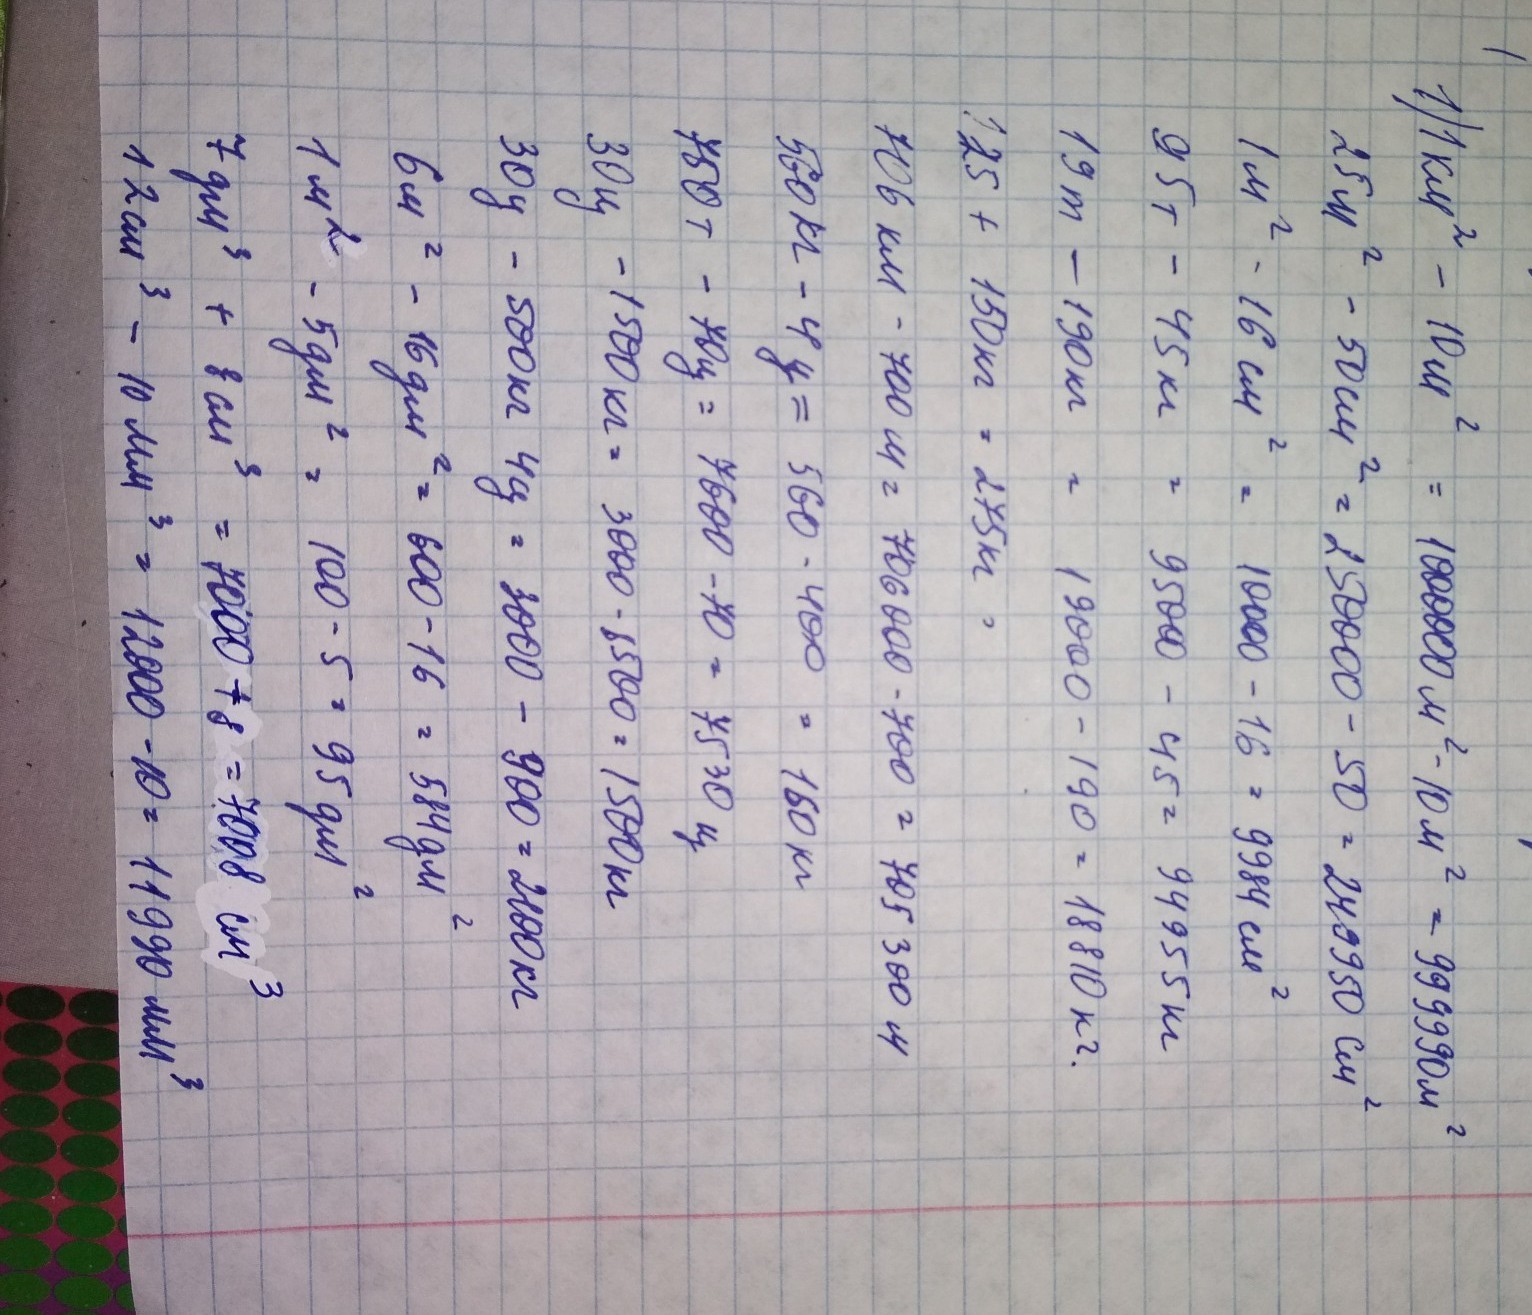 1) 1 км² - 10м² = 1000000 м² - 10 м² = 999990м²
25м² - 50см² = 250000 - 50 = 249950 см²
1м² - 16 см² = 10000 - 16 = 9984 см²
95т - 45кг = 95000 - 45 = 94955 кг
19т - 190кг = 19000 - 190 = 18810 кг.
125 + 150кг = 275кг
706 км - 700 м = 706000 - 700 = 705300 м
560 кг - 4 ц = 560 - 400 = 160 кг
- 70ц = 7600 - 70 = 7530 ц
30ц - 1500 кг = 3000 - 1500 = 1500кг
30ц - 500кг 4ц = 3000 - 900 = 2100кг
6м² - 16 дм² = 600 - 16 = 584дм²
1 м² - 5дм² = 100 - 5 = 95 дм²
7 дм³ + 8см³ = 7000 + 8 = 7008 см³
12см³ - 10 мм³ = 12000 - 10 = 11990 мм³